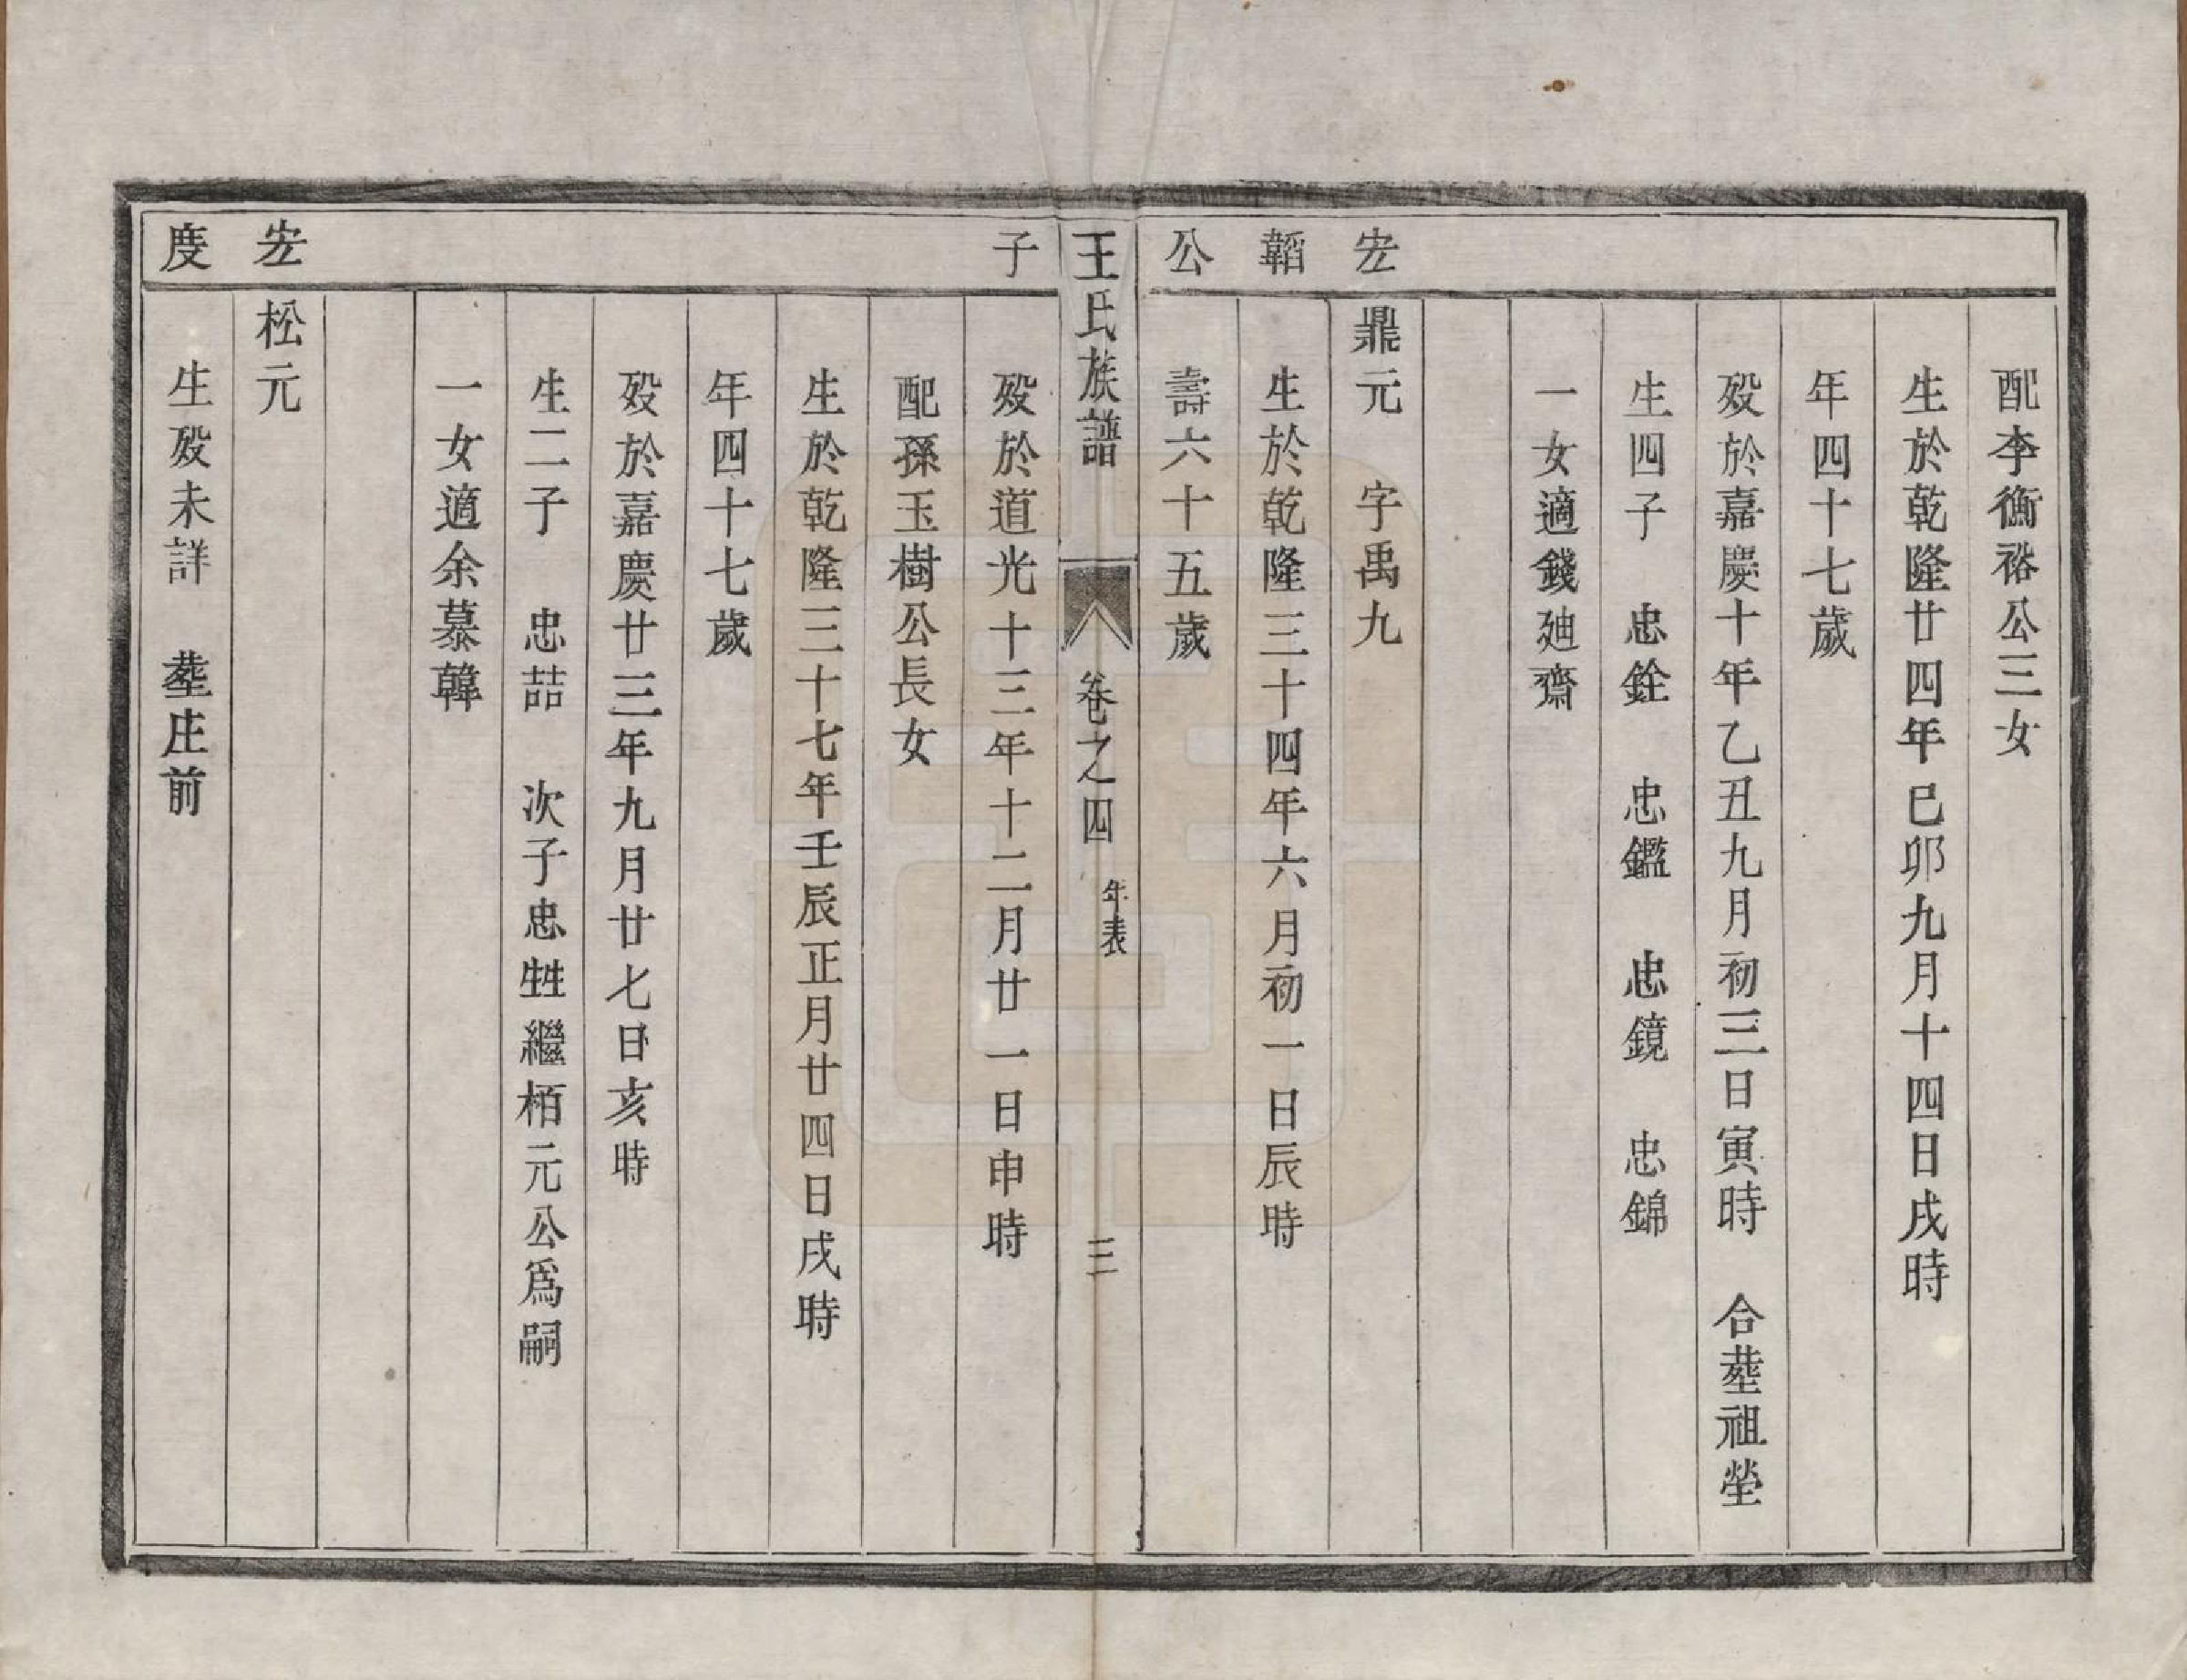 配李衡裕公三女
生於乾隆廿四年己卯九月十四日戌時
年四十七歲
歿於嘉慶十年乙丑九月初三日寅時　合塟祖塋
生四子　忠銓　忠鑑　忠鏡　忠錦
一女適錢廸齋
宏韜公
鼎元　字禹九
生於乾隆三十四年六月初一日辰時
壽六十五歲
王氏族譜　卷之四　年表　三
子
歿於道光十三年十二月廿一日申時
配孫玉樹公長女
生於乾隆三十七年壬辰正月廿四日戌時
年四十七歲
歿於嘉慶廿三年九月廿七日亥時
生二子　忠喆　次子忠甡繼栢元公爲嗣
一女適余慕韓
宏度
松元
生歿未詳　塟庄前